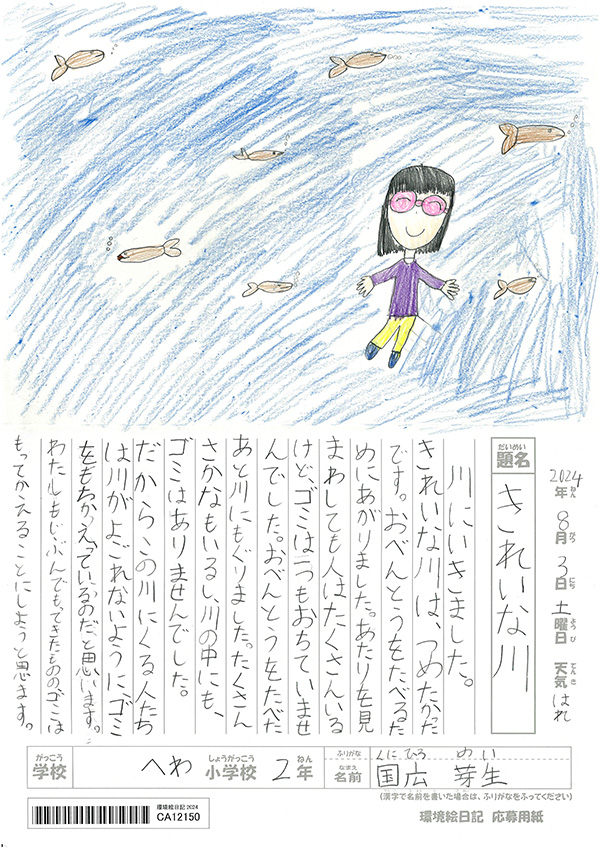 2024年 8月 3日 土曜日 天気 はれ
ねん がつ にち ようび てんき
だいめい
題名
きれいな川
川にいきました。
きれいな川は、つめたかった
です。おべんとうをたべるた
めにあがりました。あたりを見
まわしても人はたくさんいる
けどゴミは一つもおちていませ
んでした。おべんとうをたべた
あと川にもぐりました。たくさん
さかなもいるし、川の中にも、
ゴミはありませんでした。
だからこの川にくる人たち
は川がよごれないようにゴミ
をもちかえっているのだと思います。
わたしもじぶんでもってきたもののゴミは
もってかえることにしようと思ます。
がっこう
学校
へわ
しょうがっこう
小学校
2
ねん
年
ふりがな
くにひろ めい
なまえ
名前
国広 芽生
(漢字で名前を書いた場合は、ふりがなをふってください)
環境絵日記2024
CA12150
環境絵日記 応募用紙